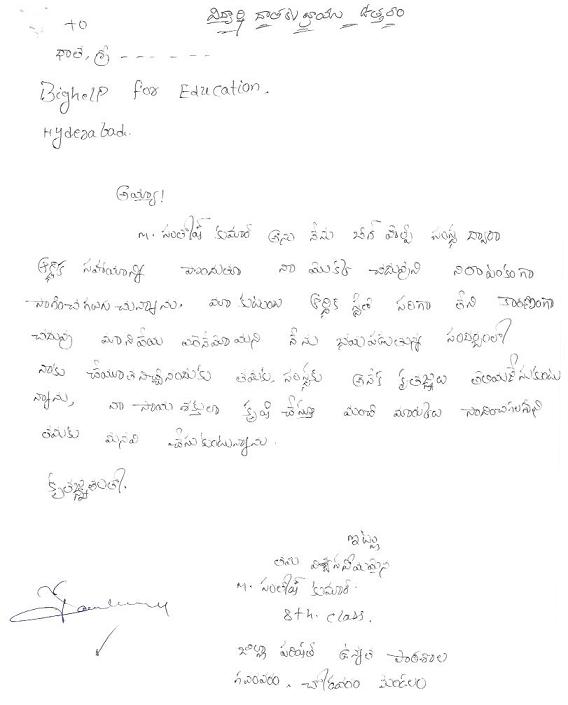 విద్యార్థి దాతకు వ్రాయు ఉత్తరం
TO
దాత, శ్రీ - - - - - -
Bighelp for Education.
Hyderabad.
అయ్యా!
M. సంతోష్ కుమార్ అను నేను బిగ్ హెల్ప్ సంస్థ ద్వారా
ఆర్థిక సహాయాన్ని పొందుతూ నా యొక్క చదువుని నిరాటంకంగా
సాగించగలుగుచున్నాను. మా కుటుంబ ఆర్థిక స్థితి సరిగా లేని కారణంగా
చదువు మానివేయ వలెనేమోయని నేను భయపడుతున్న సందర్భంలో
నాకు చేయూతనిచ్చినందుకు తమకు, సంస్థకు అనేక కృతజ్ఞతలు తెలియజేసుకుంటు
న్నాను, నా సాయ శక్తులా కృషి చేస్తూ మంచి మార్కులు సాధించగలనని
తమకు మనవి చేసుకుంటున్నాను.
కృతజ్ఞతలతో.
ఇట్లు
తమ విశ్వసనీయుడైన
M. సంతోష్ కుమార్.
8th. class.
జిల్లా పరిషత్ ఉన్నత పాఠశాల
గవరవరం. చోడవరం మండలం